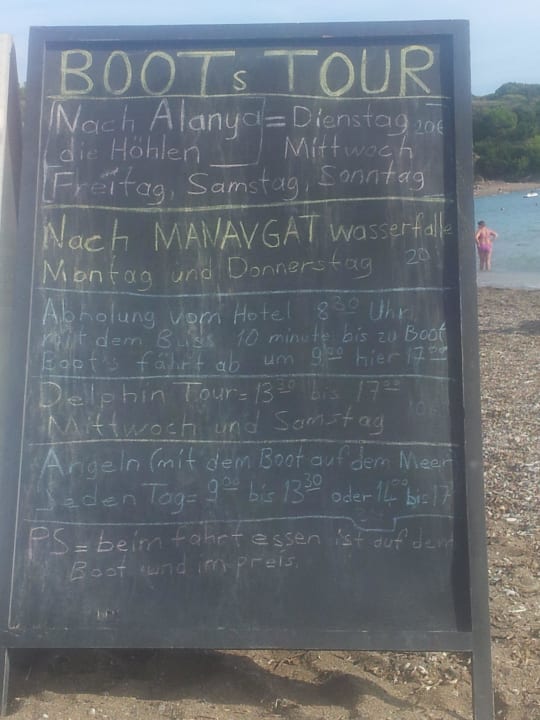 BOOTs TOUR
Nach Alanya = Dienstag 20€
die Höhlen Mittwoch
Freitag, Samstag, Sonntag
Nach MANAVGAT wasserfälle
Montag und Donnerstag 20
Abholung vom Hotel 8³⁰ Uhr
mit dem Buss 10 minute bis zu Boot
Boot's fährt ab um 9⁰⁰ hier 17⁰⁰
Delphin Tour = 13³⁰ bis 17⁰⁰
Mittwoch und Samstag
Angeln (mit dem Boot auf dem Meer
Jeden Tag = 9⁰⁰ bis 13³⁰ oder 14⁰⁰ bis 17
PS = beim fahrt essen ist auf dem
Boot und im preis.